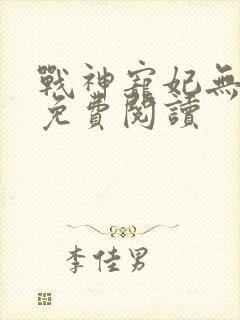 戰神寵妃無
免費閱讀
李佳男